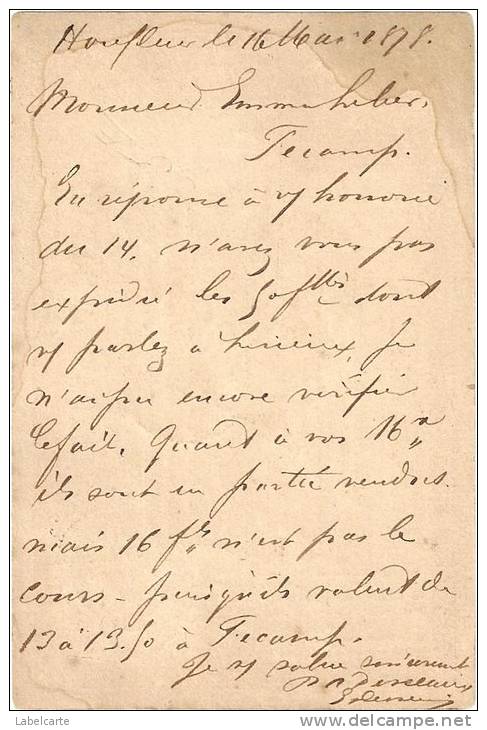 Honfleur le 16 Mai 1878.
Monsieur
Fecamp.
En réponse à v/ honorée
du 14. n'avez vous pas
expédié les 50 f dont
v/ parlez à Lisieux, Je
n'ai pu encore vérifier
le fait. Quant à vos 16
ils sont en partie vendus
mais 16 f n'est pas le
cours - puisqu'ils valent de
13 à 13.50 à Fecamp.
Je v/ salue
Labelcarte
delcampe.net